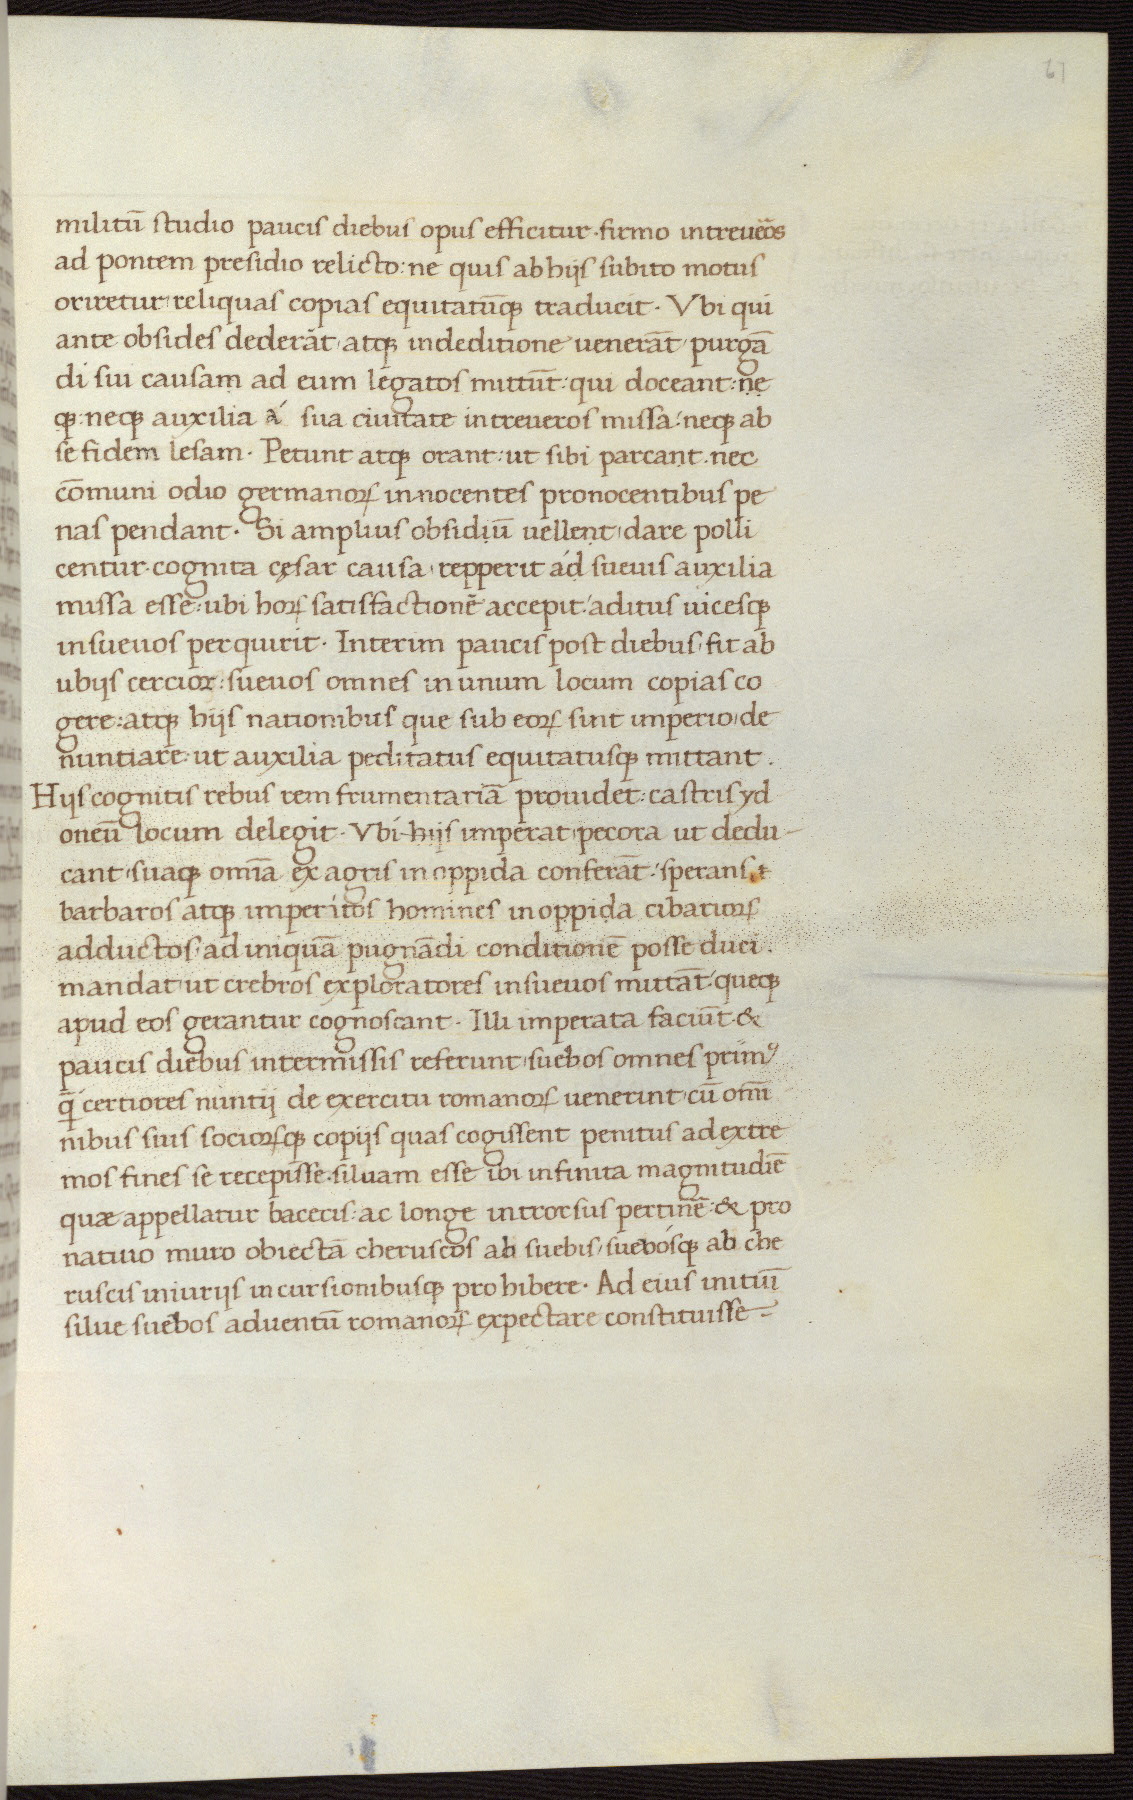 61
militū studio paucis diebus opus efficitur · firmo in treueōs
ad pontem presidio relicto : ne quis ab hijs subito motus
oriretur reliquas copias equitatūqꝫ traducit · Vbi qui
ante obsides dederāt atqꝫ indeditione uenerāt purgā
di sui causam ad eum legatos mittūt : qui doceant : ne
qꝫ : neqꝫ auxilia á sua ciuitate in treueros missa : neqꝫ ab
se fidem lesam · Petunt atqꝫ orant : ut sibi parcant · nec
cōmuni odio germanoꝝ in nocentes pro nocentibus pe
nas pendant · Si amplius obsidiū uellent dare polli
centur · cognita cęsar causa repperit ád sueuis auxilia
missa esse : ubi hoꝝ satisfactionē accepit : aditus uicesqꝫ
in sueuos perquirit · Interim paucis post diebus fit ab
ubijs cercior : sueuos omnes in unum locum copias co
gere : atqꝫ hijs nationibus que sub eoꝝ sint imperio de
nuntiare ut auxilia peditatus equitatusqꝫ mittant .
Hijs cognitis rebus rem frumentariā prouidet : castris yd
oneū locum delegit · Vbi hijs imperat pecora ut dedu-
cant suaqꝫ omīa ex agris in oppida conferāt : sperans
barbaros atqꝫ imperitos homines in oppida cibarioꝝ
adductos ad iniquā pugnādi conditionē posse duci .
mandat ut crebros exploratores in sueuos mittāt : queqꝫ
apud eos gerantur cognoscant · Illi imperata faciūt · &
paucis diebus intermissis referunt suebos omnes prim⁹
q̄ certiores nuntij de exercitu romanoꝝ uenerint cū om̄i
nibus suis socioꝝqꝫ copijs quas cogissent penitus ad extre
mos fines se recepisse · siluam esse ibi infinita magnitudīe
quæ appellatur bacecis : ac longe introrsus pertinē : & pro
natiuo muro obiectā cheruscos ab suebis suebósqꝫ ab che
ruscis iniurijs incursionibusqꝫ prohibere · Ad eius initiū
silue suebos aduentū romanoꝝ expectare constituisse